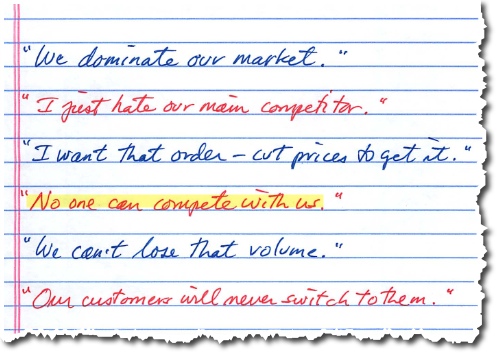 "We dominate our market."
"I just hate our main competitor."
"I want that order – cut prices to get it."
"No one can compete with us."
"We can't lose that volume."
"Our customers will never switch to them."